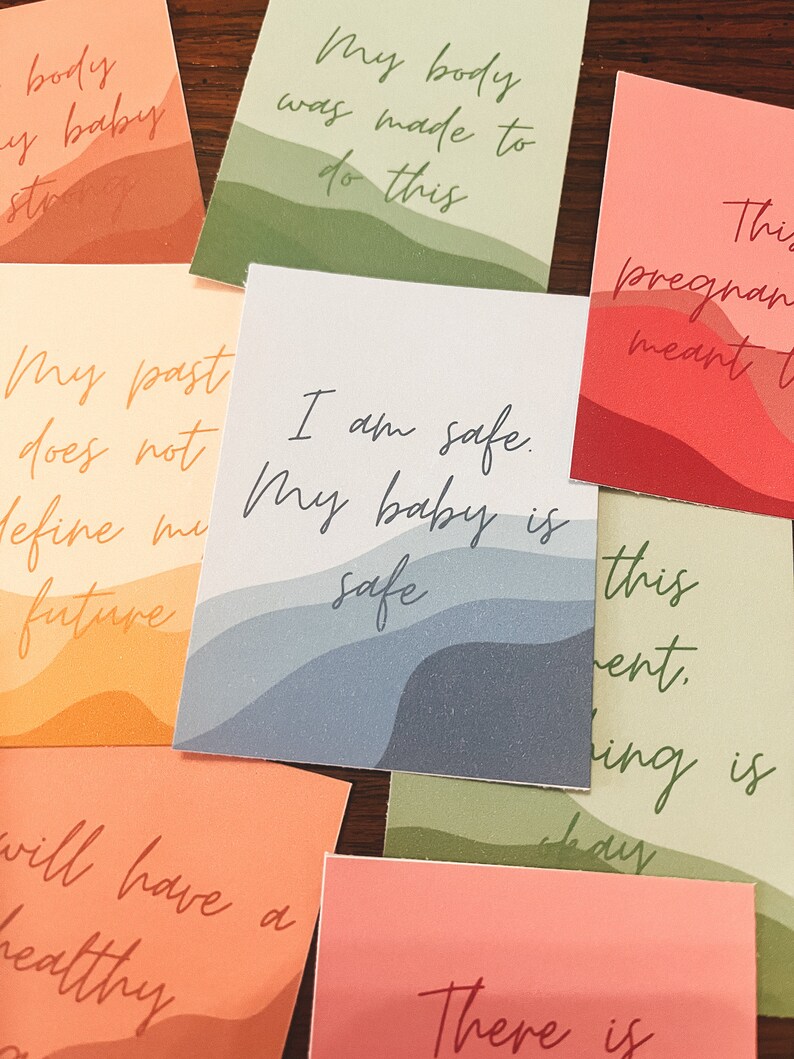 body
my baby
strong
My body
was made to
do this
This
meant
My past
does not
define my
future
I am safe.
My baby is
safe
this
is
okay
will have a
healthy
There is